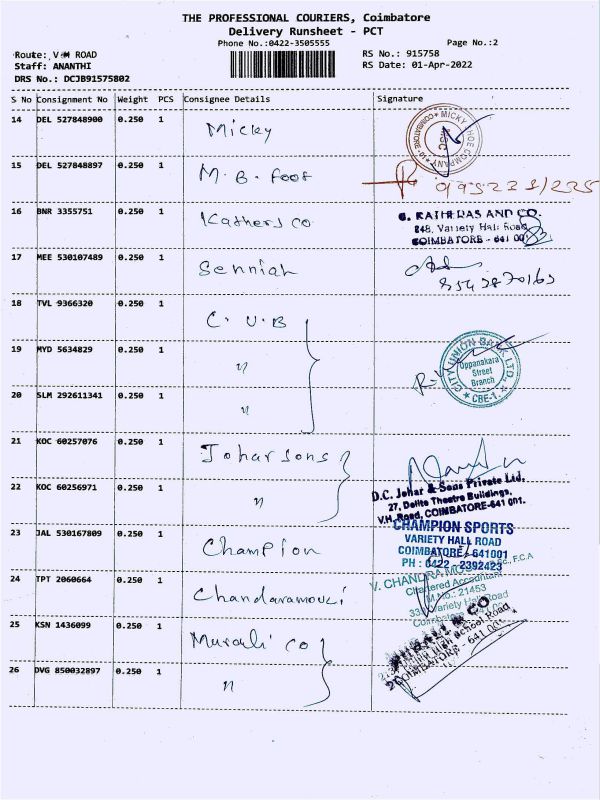 THE PROFESSIONAL COURIERS, Coimbatore
Delivery Runsheet - PCT
Phone No.:0422-3505555 Page No.:2
Route: V M ROAD RS No.: 915758
Staff: ANANTHI RS Date: 01-Apr-2022
DRS No.: DCJB91575802
S No Consignment No Weight PCS Consignee Details Signature
14 DEL 527848900 0.250 1 Micky
MICKY SHOE COMPANY COIMBATORE
15 DEL 527848897 0.250 1 M. B. Foot
16 BNR 3355751 0.250 1 Kathers co
G. KATHERAS AND CO.
248, Variety Hall Road,
COIMBATORE - 641 001
17 MEE 530107489 0.250 1 Senniah
18 TVL 9366320 0.250 1 C. U. B
19 MYD 5634829 0.250 1 "
CITY UNION BANK LTD.
Oppanakara
Street
Branch
CBE-1.
20 SLM 292611341 0.250 1 "
21 KOC 60257076 0.250 1 Joharsons
22 KOC 60256971 0.250 1 "
D.C. Johar & Sons Private Ltd.
27, Delite Theatre Buildings,
V.H. Road, COIMBATORE-641 001.
23 JAL 530167809 0.250 1 Champion
CHAMPION SPORTS
VARIETY HALL ROAD
COIMBATORE-641001
PH : 0422 - 2392423
24 TPT 2060664 0.250 1 Chandaramouli
V. CHANDRAMOULI F.C.A
Chartered Accountant
M.No.: 21453
Variety Hall Road
Coimbatore
25 KSN 1436099 0.250 1 Murali co
MURALI & CO
High School Road
COIMBATORE - 641 001
26 DVG 850032897 0.250 1 "